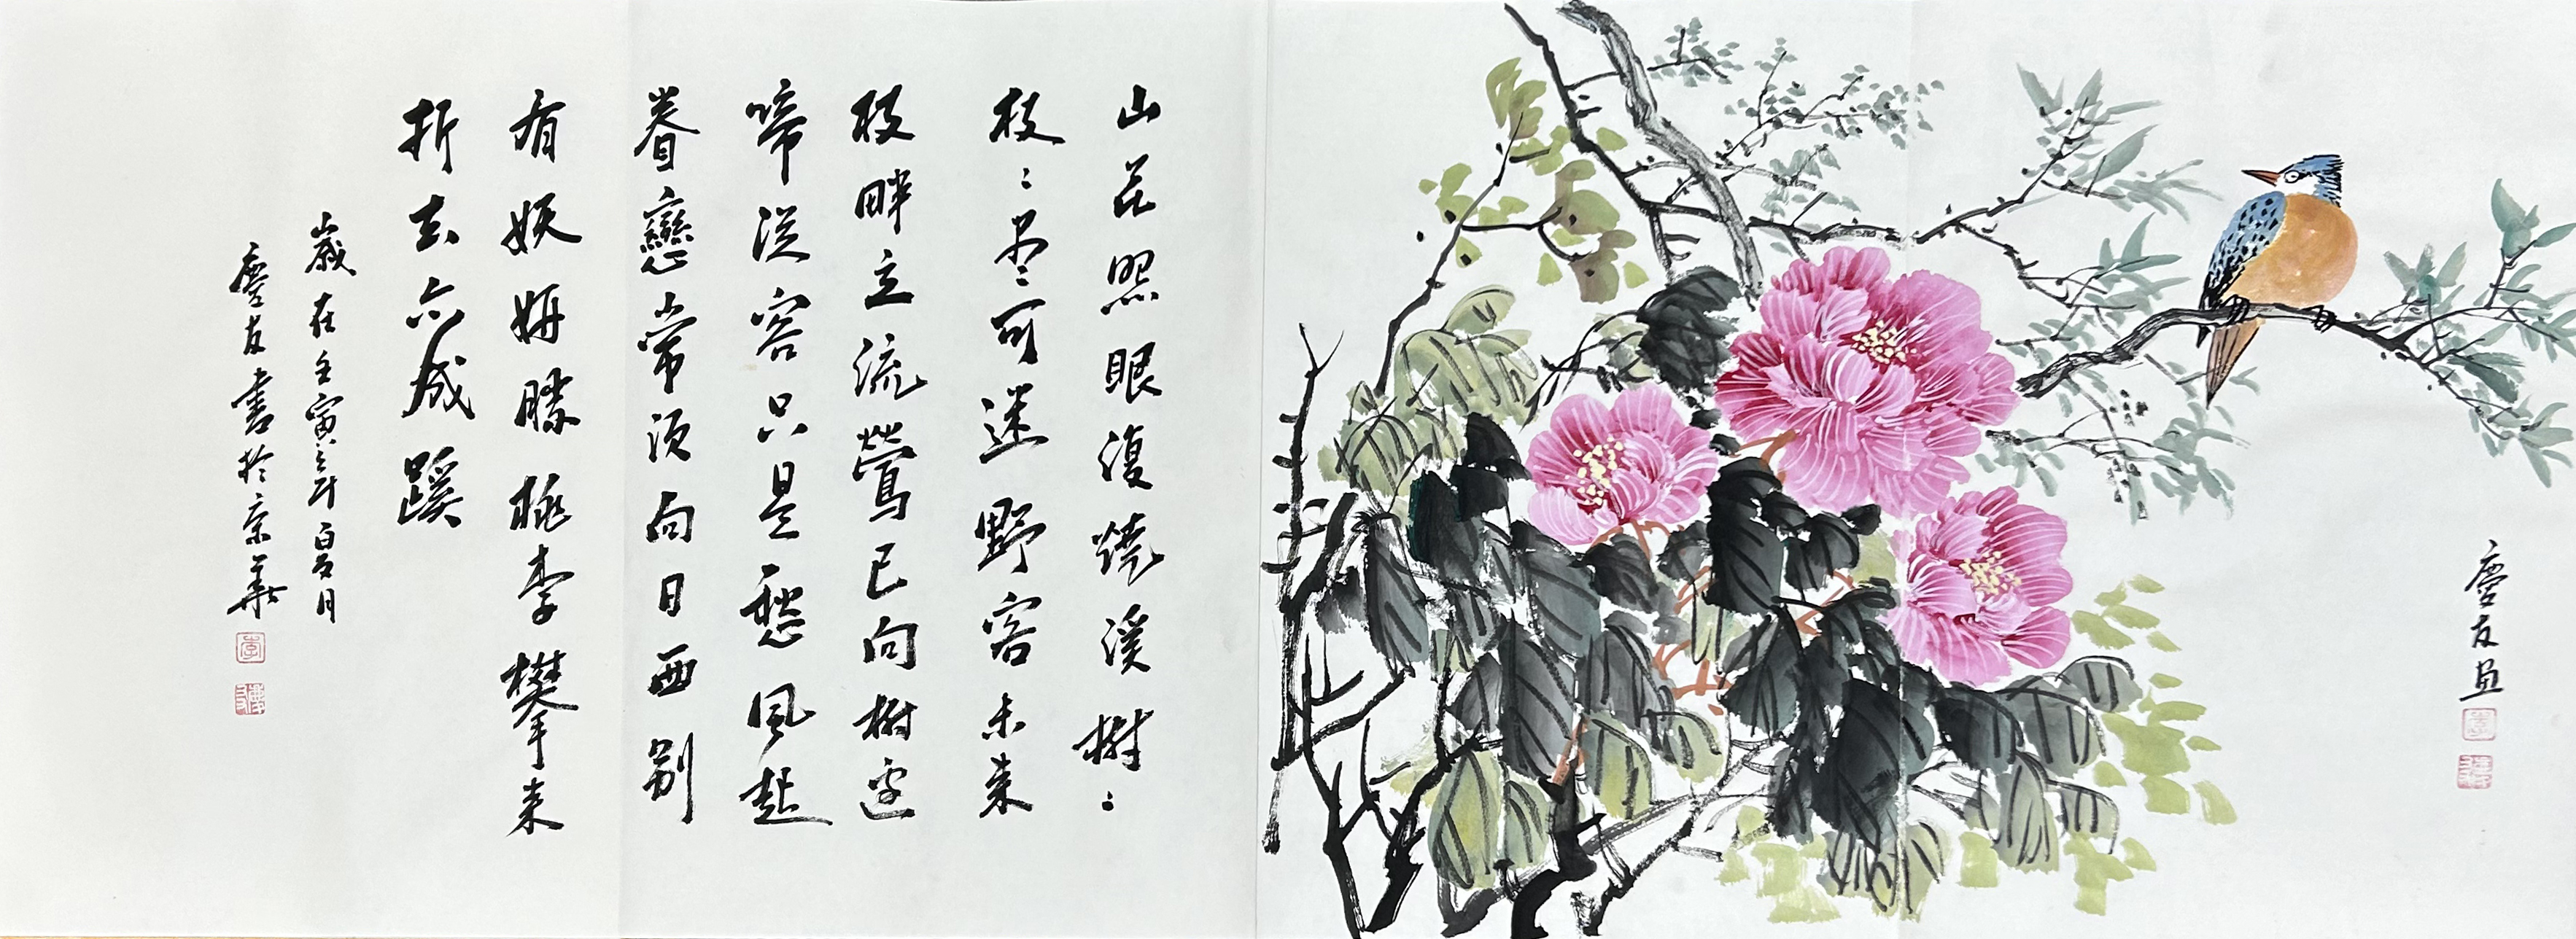 慶友画
山花照眼復燒溪樹〻
枝〻尽可迷野客未来
枝畔立流鶯已向樹边
啼從容只是愁風起
眷戀常須向日西别
有妖妍勝桃李攀来
折去亦成蹊
歲在壬寅之年夏月
慶友書於京華